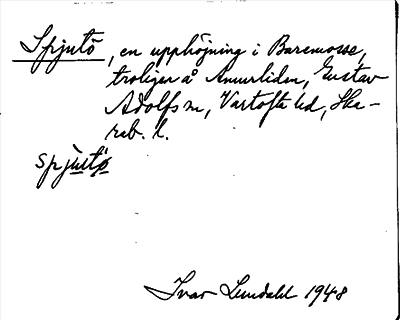 Spjutö, en upphöjning i Baremosse,
troligen å Amurliden, Gustav
Adolfs sn, Vartofta hd, Ska-
rab. l.
spjutö
Ivar Lundahl 1948